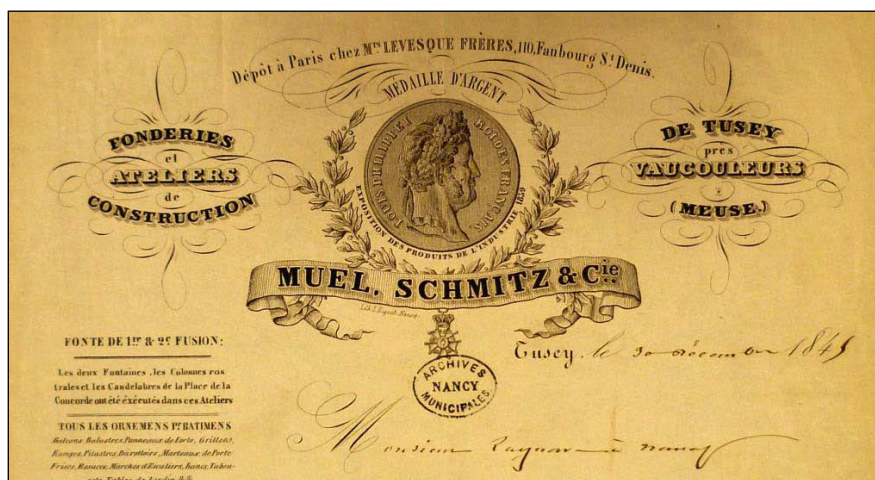 Dépôt à Paris chez Mrs LEVESQUE FRÈRES, 110, Faubourg St Denis.
MÉDAILLE D'ARGENT
FONDERIES
et
ATELIERS
de
CONSTRUCTION
LOUIS PHILIPPE I ROI DES FRANÇAIS
EXPOSITION DES PRODUITS DE L'INDUSTRIE 1839
DE TUSEY
près
VAUCOULEURS
(MEUSE.)
MUEL, SCHMITZ & Cie
FONTE DE 1re & 2e FUSION:
Les deux Fontaines, les Colonnes ros
trales et les Candelabres de la Place de la
Concorde ont été éxécutés dans ces Ateliers
TOUS LES ORNEMENS Pr BATIMENS
Balcons, Balustres, Panneaux de Porte, Grilles,
Rampes, Pilastres, Marteaux de Porte
Frises, Rosaces, Marches d'Escaliers, Bancs, Tabou-
Tusey, le 30 décembre 184
ARCHIVES
NANCY
MUNICIPALES
Monsieur à nancy